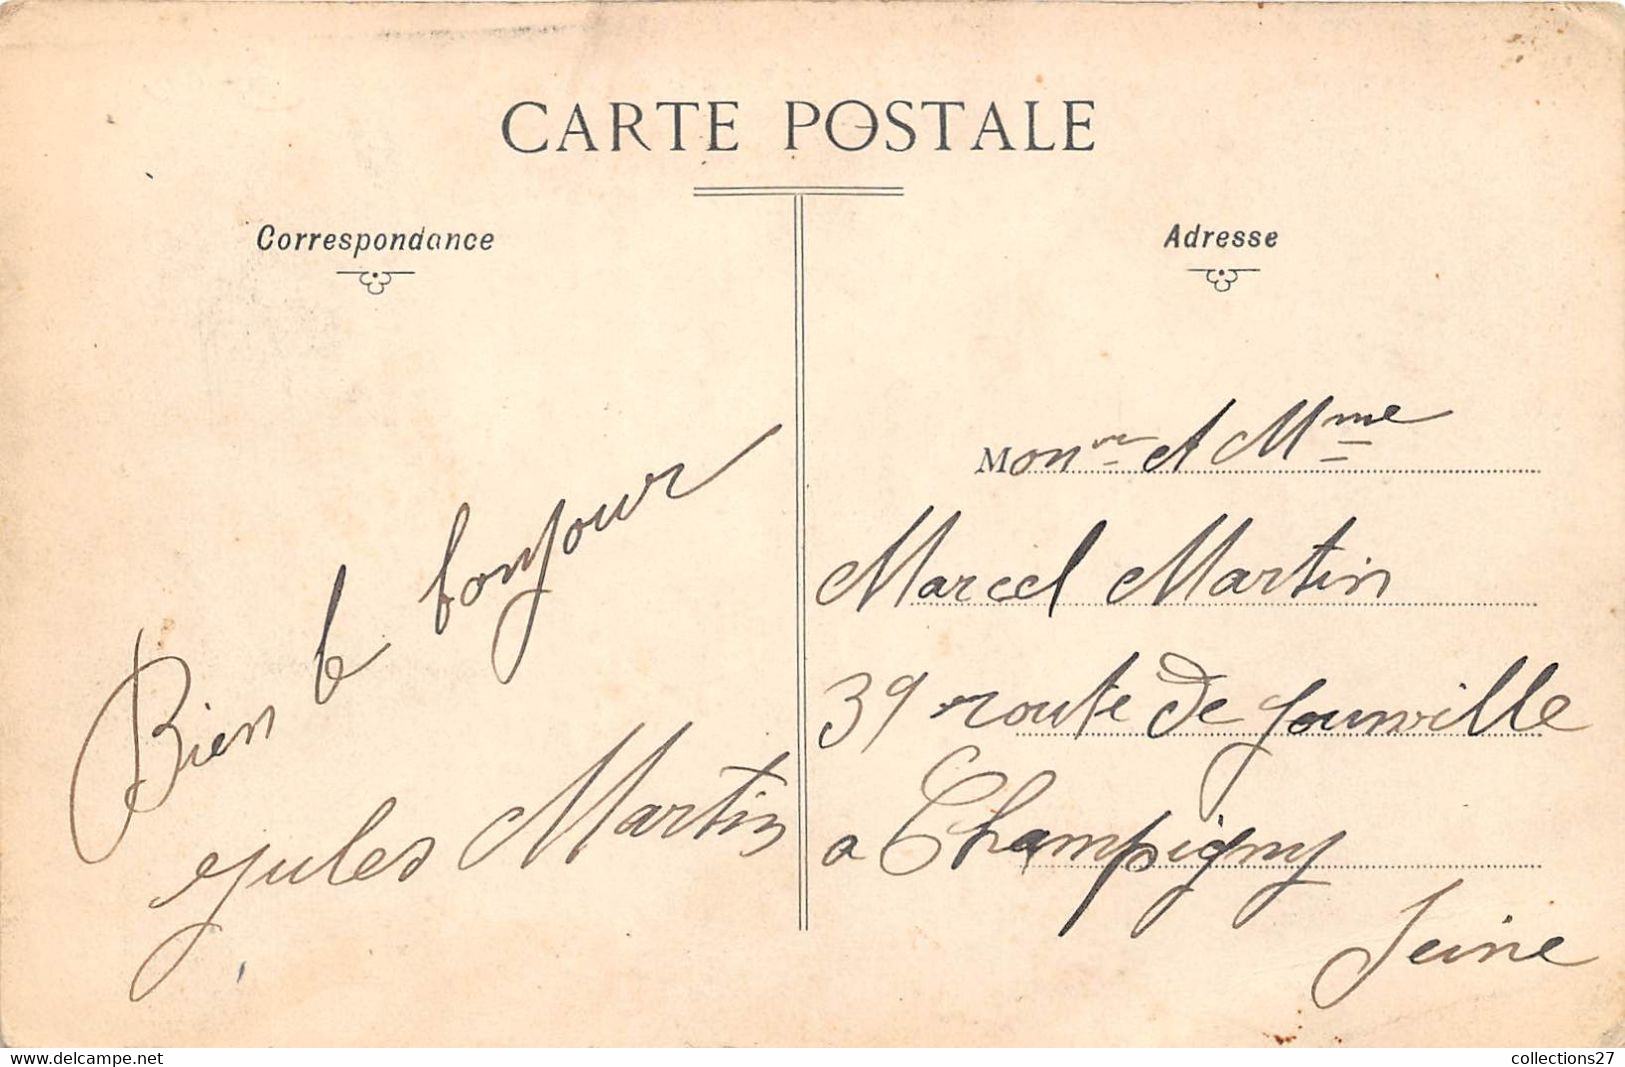 CARTE POSTALE
Correspondance
Bien le bonjour
Jules Martin
Adresse
Monsr et Mme
Marcel Martin
39 route de Joinville
a Champigny
Seine
www.delcampe.net
collections27